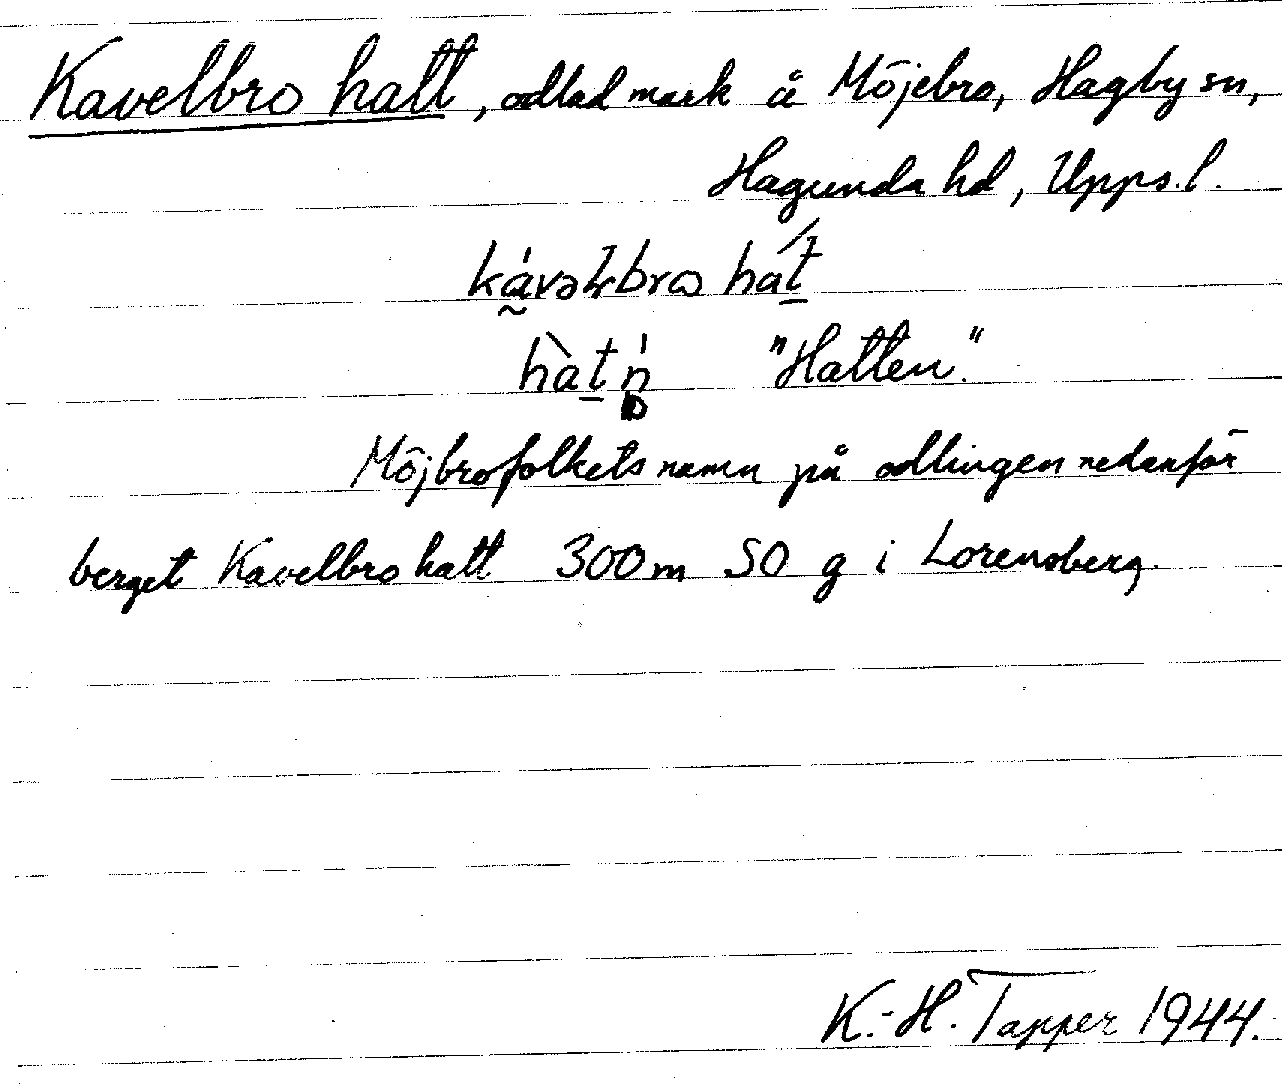 Kavelbro hatt, odlad mark å Möjebro, Hagby sn,
Hagunda hd, Upps. l.
kávəɫbrω hát
hàtn̥ "Hatten".
Möjbrofolkets namn på odlingen nedanför
berget Kavelbro hatt 300 m SO g i Lorensberg.
K.-H. Tapper 1944.